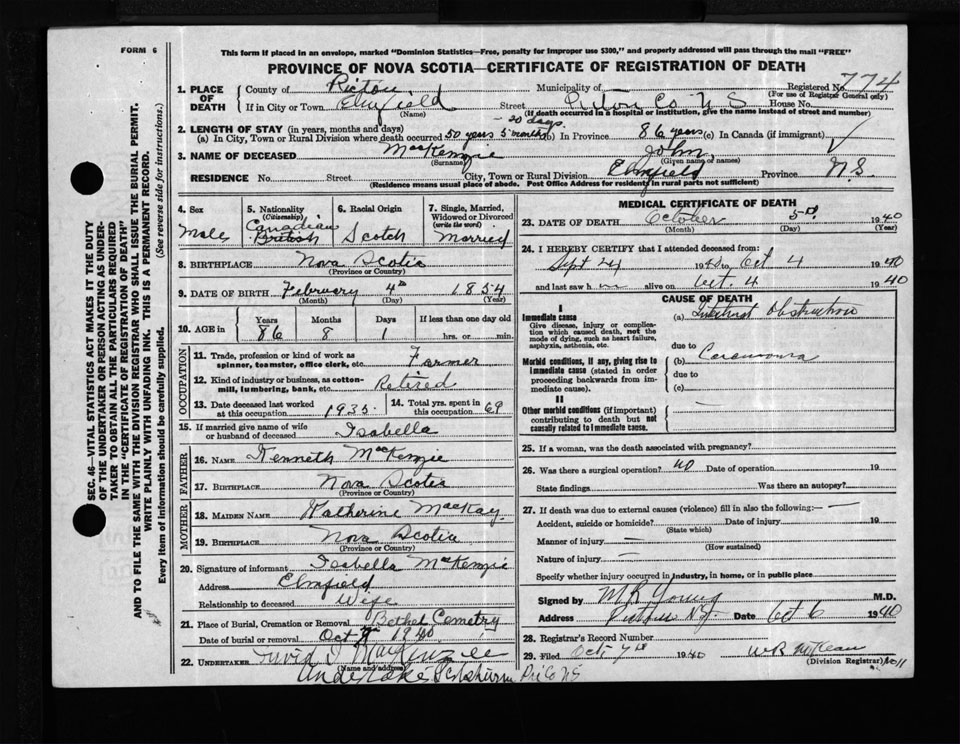 FORM 6
This form if placed in an envelope, marked "Dominion Statistics—Free, penalty for improper use $300," and properly addressed will pass through the mail "FREE"
PROVINCE OF NOVA SCOTIA—CERTIFICATE OF REGISTRATION OF DEATH
SEC. 46—VITAL STATISTICS ACT MAKES IT THE DUTY
OF THE UNDERTAKER OR PERSON ACTING AS UNDER-
TAKER TO OBTAIN ALL THE PARTICULARS REQUIRED
IN THE "CERTIFICATE OF REGISTRATION OF DEATH"
AND TO FILE THE SAME WITH THE DIVISION REGISTRAR WHO SHALL ISSUE THE BURIAL PERMIT.
WRITE PLAINLY WITH UNFADING INK. THIS IS A PERMANENT RECORD.
Every item of information should be carefully supplied. (See reverse side for instructions.)
1. PLACE OF DEATH
County of Pictou Municipality of Registered No. 774
(For use of Registrar General only)
If in City or Town Elmfield Street Pictou Co. N S House No.
(Name) (If death occurred in a hospital or institution, give the name instead of street and number)
2. LENGTH OF STAY (in years, months and days) 20 days.
(a) In City, Town or Rural Division where death occurred 50 years 5 months (b) In Province 86 years (c) In Canada (if immigrant)
3. NAME OF DECEASED MacKenzie John
(Surname) (Given name or names)
RESIDENCE No. Street City, Town or Rural Division Elmfield Province N.S.
(Residence means usual place of abode. Post Office Address for residents in rural parts not sufficient)
4. Sex Male
5. Nationality (Citizenship) Canadian British
6. Racial Origin Scotch
7. Single, Married, Widowed or Divorced (write the word) Married
8. BIRTHPLACE Nova Scotia
(Province or Country)
9. DATE OF BIRTH February 4th 1854
(Month) (Day) (Year)
10. AGE in Years Months Days If less than one day old
86 8 1 hrs. or min.
OCCUPATION
11. Trade, profession or kind of work as spinner, teamster, office clerk, etc. Farmer
12. Kind of industry or business, as cotton-mill, lumbering, bank, etc. Retired
13. Date deceased last worked at this occupation 1935. 14. Total yrs. spent in this occupation 69
15. If married give name of wife or husband of deceased Isabella
FATHER
16. NAME Kenneth MacKenzie
17. BIRTHPLACE Nova Scotia
(Province or Country)
MOTHER
18. MAIDEN NAME Katherine MacKay
19. BIRTHPLACE Nova Scotia
(Province or Country)
20. Signature of informant Isabella MacKenzie
Address Elmfield
Relationship to deceased Wife
21. Place of Burial, Cremation or Removal Bethel Cemetry
Date of burial or removal Oct 1940.
22. UNDERTAKER David MacKenzie
(Name and address)
Undertaker Pic Co NS
MEDICAL CERTIFICATE OF DEATH
23. DATE OF DEATH October 5th 1940
(Month) (Day) (Year)
24. I HEREBY CERTIFY that I attended deceased from
Sept 24 1940 to Oct 4 1940
and last saw h m alive on Oct. 4 1940
CAUSE OF DEATH
I
Immediate cause
Give disease, injury or complication which caused death, not the mode of dying, such as heart failure, asphyxia, asthenia, etc.
(a) Intestinal Obstruction
due to
Morbid conditions, if any, giving rise to immediate cause (stated in order proceeding backwards from immediate cause).
(b) Carcinoma
due to
(c)
II
Other morbid conditions (if important) contributing to death but not causally related to immediate cause.
25. If a woman, was the death associated with pregnancy?
26. Was there a surgical operation? no Date of operation 19
State findings Was there an autopsy?
27. If death was due to external causes (violence) fill in also the following:—
Accident, suicide or homicide? Date of injury 19
(State which)
Manner of injury
(How sustained)
Nature of injury
Specify whether injury occurred in industry, in home, or in public place
Signed by M R Young M.D.
Address Pictou N.S. Date Oct 6 1940
28. Registrar's Record Number
29. Filed Oct 7th 1940 W R McKean
(Division Registrar)